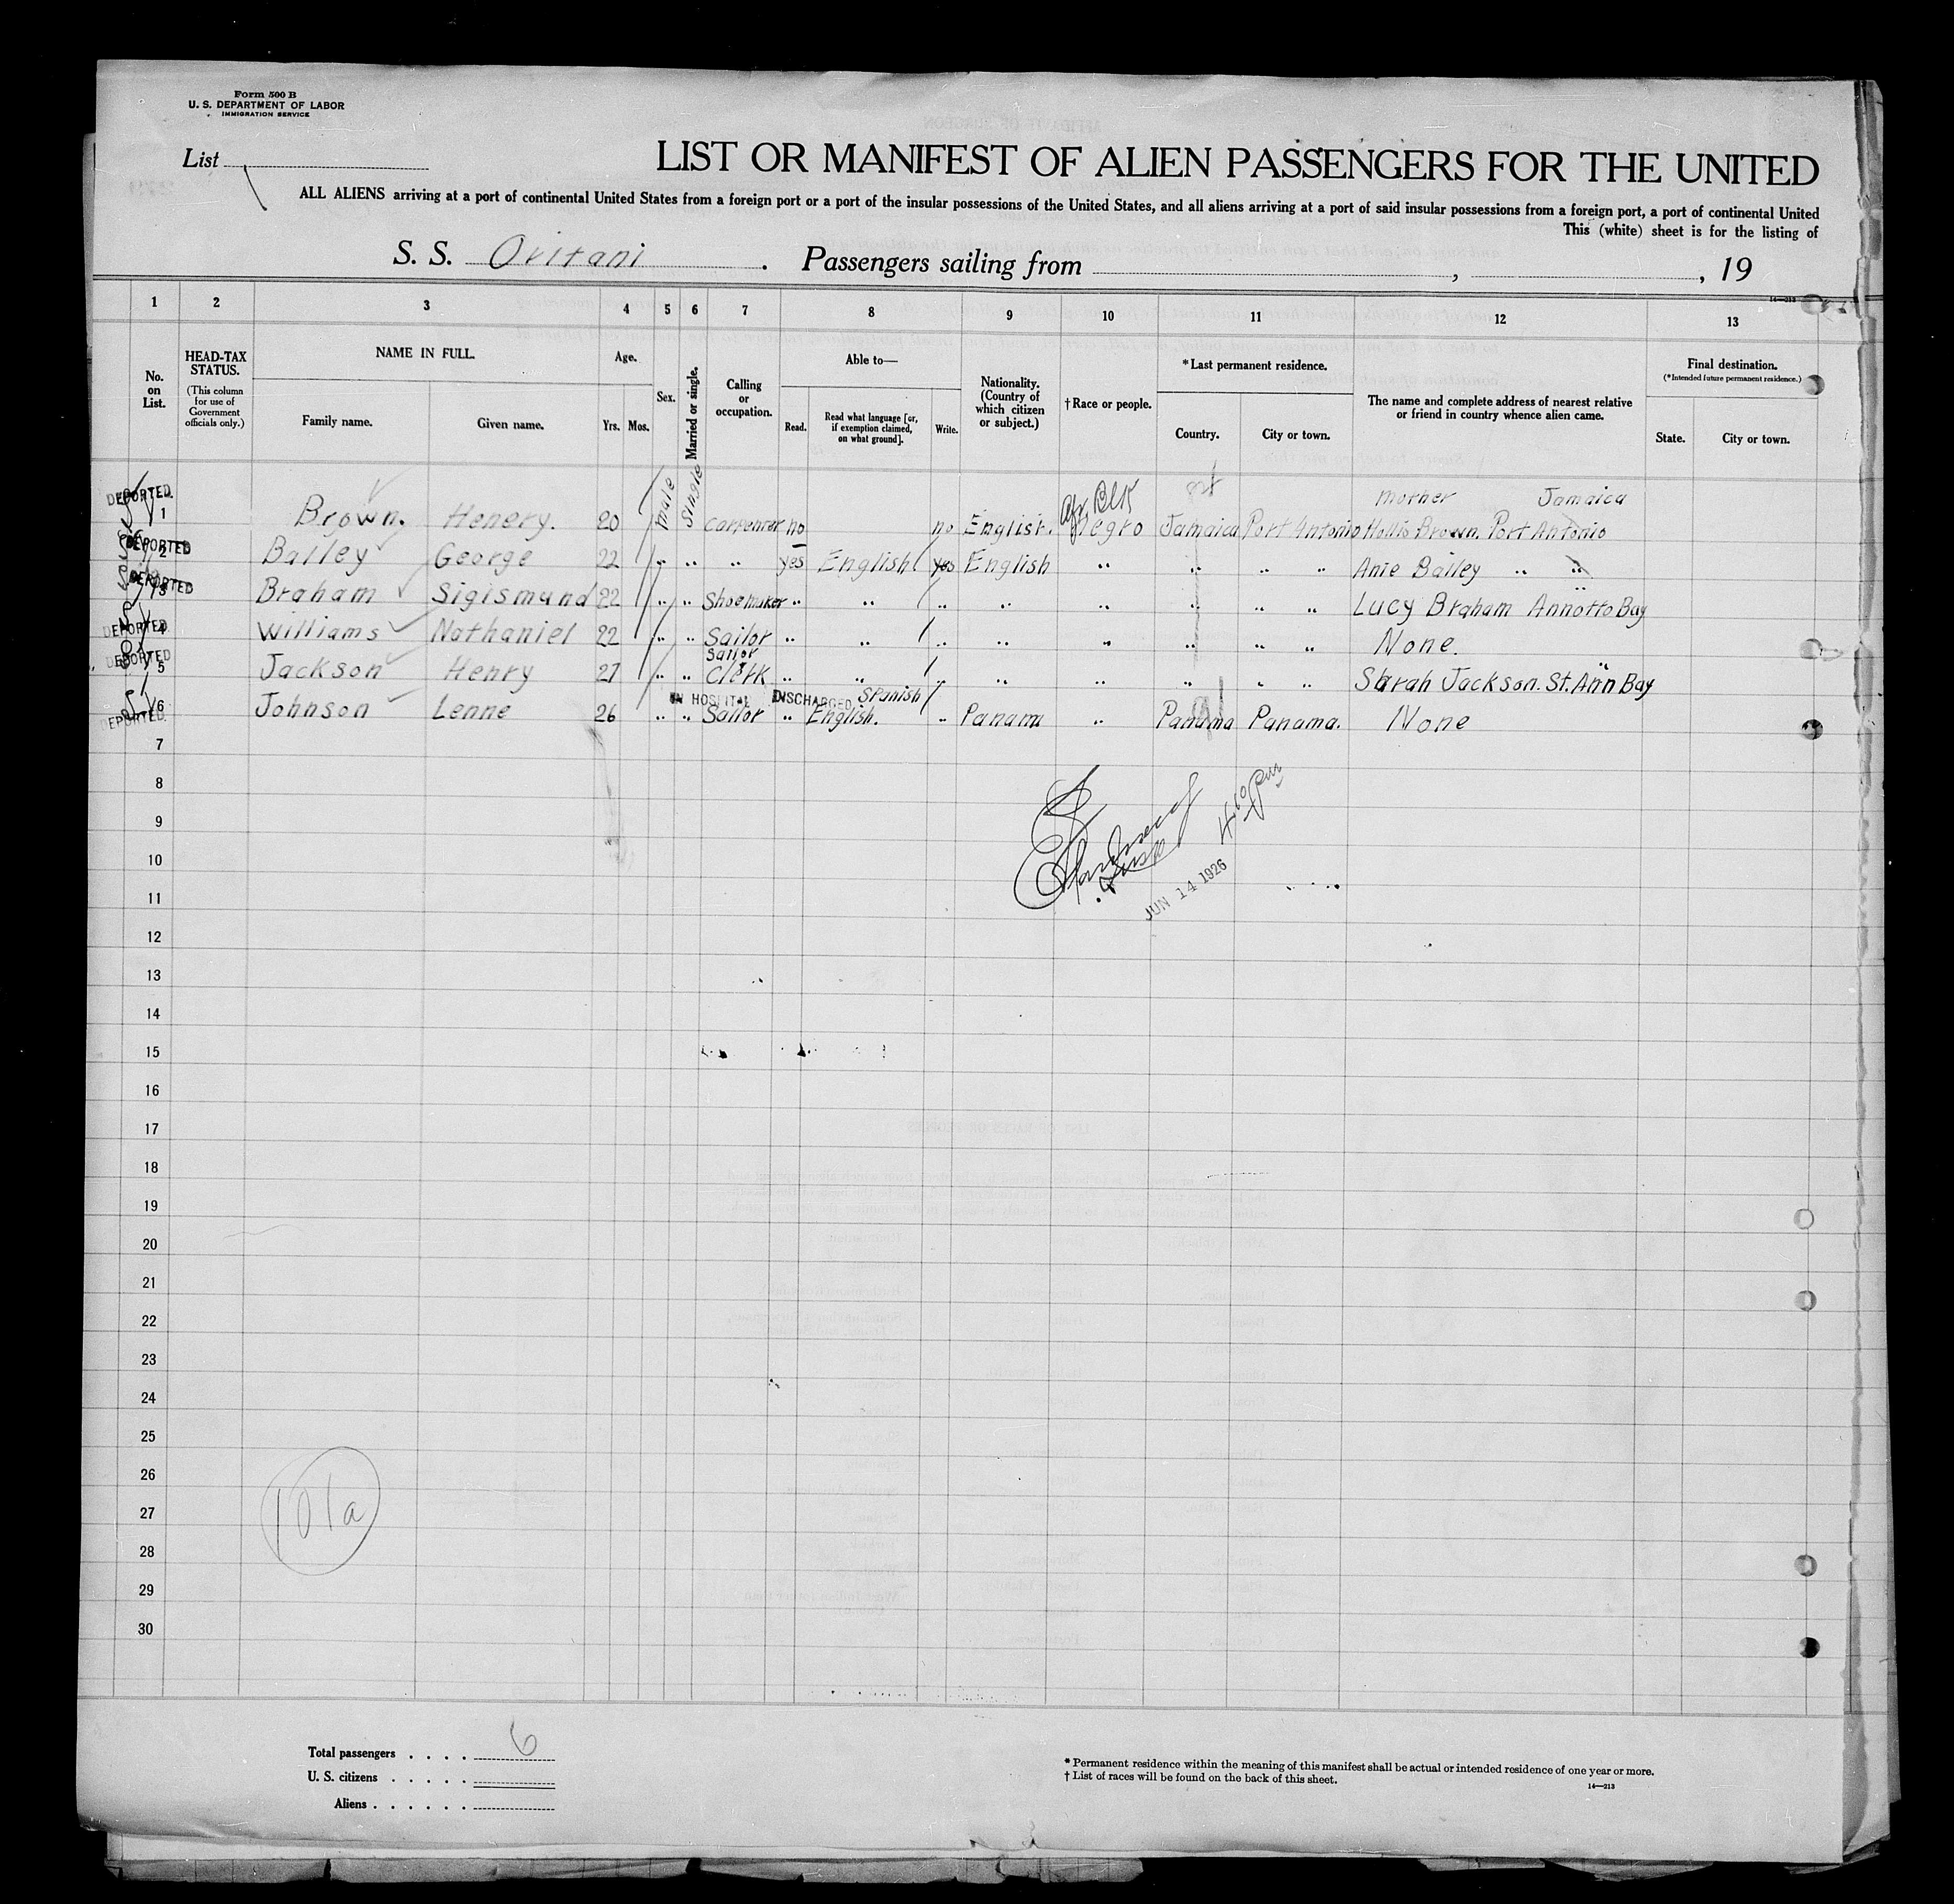 Form 500 B
U. S. DEPARTMENT OF LABOR
IMMIGRATION SERVICE
List
LIST OR MANIFEST OF ALIEN PASSENGERS FOR THE UNITED
ALL ALIENS arriving at a port of continental United States from a foreign port or a port of the insular possessions of the United States, and all aliens arriving at a port of said insular possessions from a foreign port, a port of continental United
This (white) sheet is for the listing of
S. S. Oritani . Passengers sailing from , , 19
14—213
1 2 3 4 5 6 7 8 9 10 11 12 13
No. on List.
HEAD-TAX STATUS.
(This column for use of Government officials only.)
NAME IN FULL.
Family name. Given name.
Age.
Yrs. Mos.
Sex.
Married or single.
Calling or occupation.
Able to—
Read. Read what language [or, if exemption claimed, on what ground]. Write.
Nationality. (Country of which citizen or subject.)
†Race or people.
*Last permanent residence.
Country. City or town.
The name and complete address of nearest relative or friend in country whence alien came.
Final destination.
(*Intended future permanent residence.)
State. City or town.
mother Jamaica
DEPORTED. 1 Brown. Henery. 20 male Single Carpenter no no English. Afr. Blk negro Jamaica Port Antonio Hollis Brown. Port Antonio
DEPORTED 2 Bailey George 22 " " " yes English yes English " " " " Anie Bailey " "
DEPORTED 3 Braham Sigismund 22 " " Shoemaker " " " " " " " " Lucy Braham Annotto Bay
DEPORTED 4 Williams Nathaniel 22 " " Sailor " " " " " " " " None.
Sailor
DEPORTED 5 Jackson Henry 27 " " Clerk " " " " " " " " Sarah Jackson. St. Ann Bay
IN HOSPITAL DISCHARGED Spanish
DEPORTED. 6 Johnson Lenne 26 " " Sailor " English. " Panama " Panama Panama. None
7
8
9
10
11
4 10 pm
JUN 14 1926
12
13
14
15
16
17
18
19
20
21
22
23
24
25
26
27
101a
28
29
30
Total passengers . . . . 6
U. S. citizens . . . . .
Aliens . . . . . .
* Permanent residence within the meaning of this manifest shall be actual or intended residence of one year or more.
† List of races will be found on the back of this sheet.
14—213